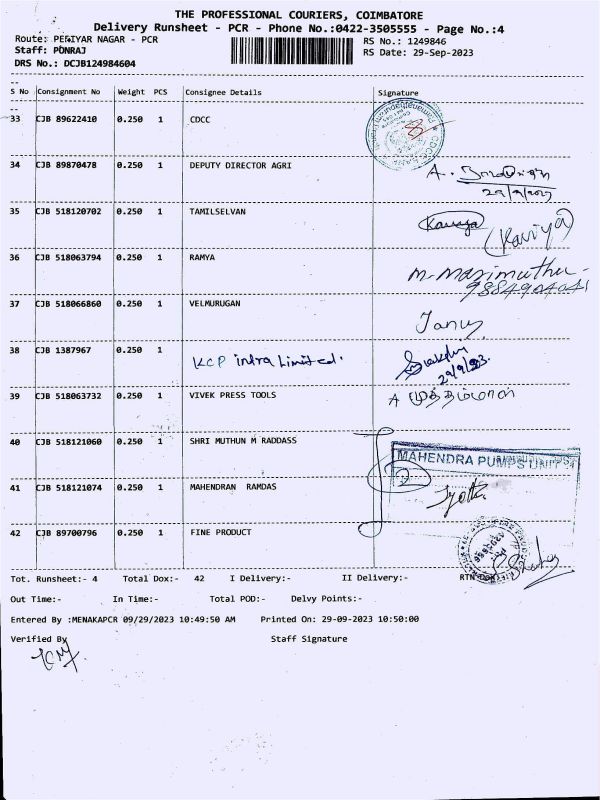 THE PROFESSIONAL COURIERS, COIMBATORE
Delivery Runsheet - PCR - Phone No.:0422-3505555 - Page No.:4
Route: PERIYAR NAGAR - PCR
RS No.: 1249846
Staff: PONRAJ
RS Date: 29-Sep-2023
DRS No.: DCJB124984604
S No Consignment No Weight PCS Consignee Details Signature
33 CJB 89622410 0.250 1 CDCC
34 CJB 89870478 0.250 1 DEPUTY DIRECTOR AGRI
29/9/2023
35 CJB 518120702 0.250 1 TAMILSELVAN
(Kaviya)
36 CJB 518063794 0.250 1 RAMYA M. Marimuthu
9884904041
37 CJB 518066860 0.250 1 VELMURUGAN
38 CJB 1387967 0.250 1 KCP infra Limited.
29/9/23.
39 CJB 518063732 0.250 1 VIVEK PRESS TOOLS A
40 CJB 518121060 0.250 1 SHRI MUTHUN M RADDASS
MAHENDRA PUMPS
41 CJB 518121074 0.250 1 MAHENDRAN RAMDAS
42 CJB 89700796 0.250 1 FINE PRODUCT
Tot. Runsheet:- 4 Total Dox:- 42 I Delivery:- II Delivery:- RTN DOX
Out Time:- In Time:- Total POD:- Delvy Points:-
Entered By :MENAKAPCR 09/29/2023 10:49:50 AM Printed On: 29-09-2023 10:50:00
Verified By Staff Signature